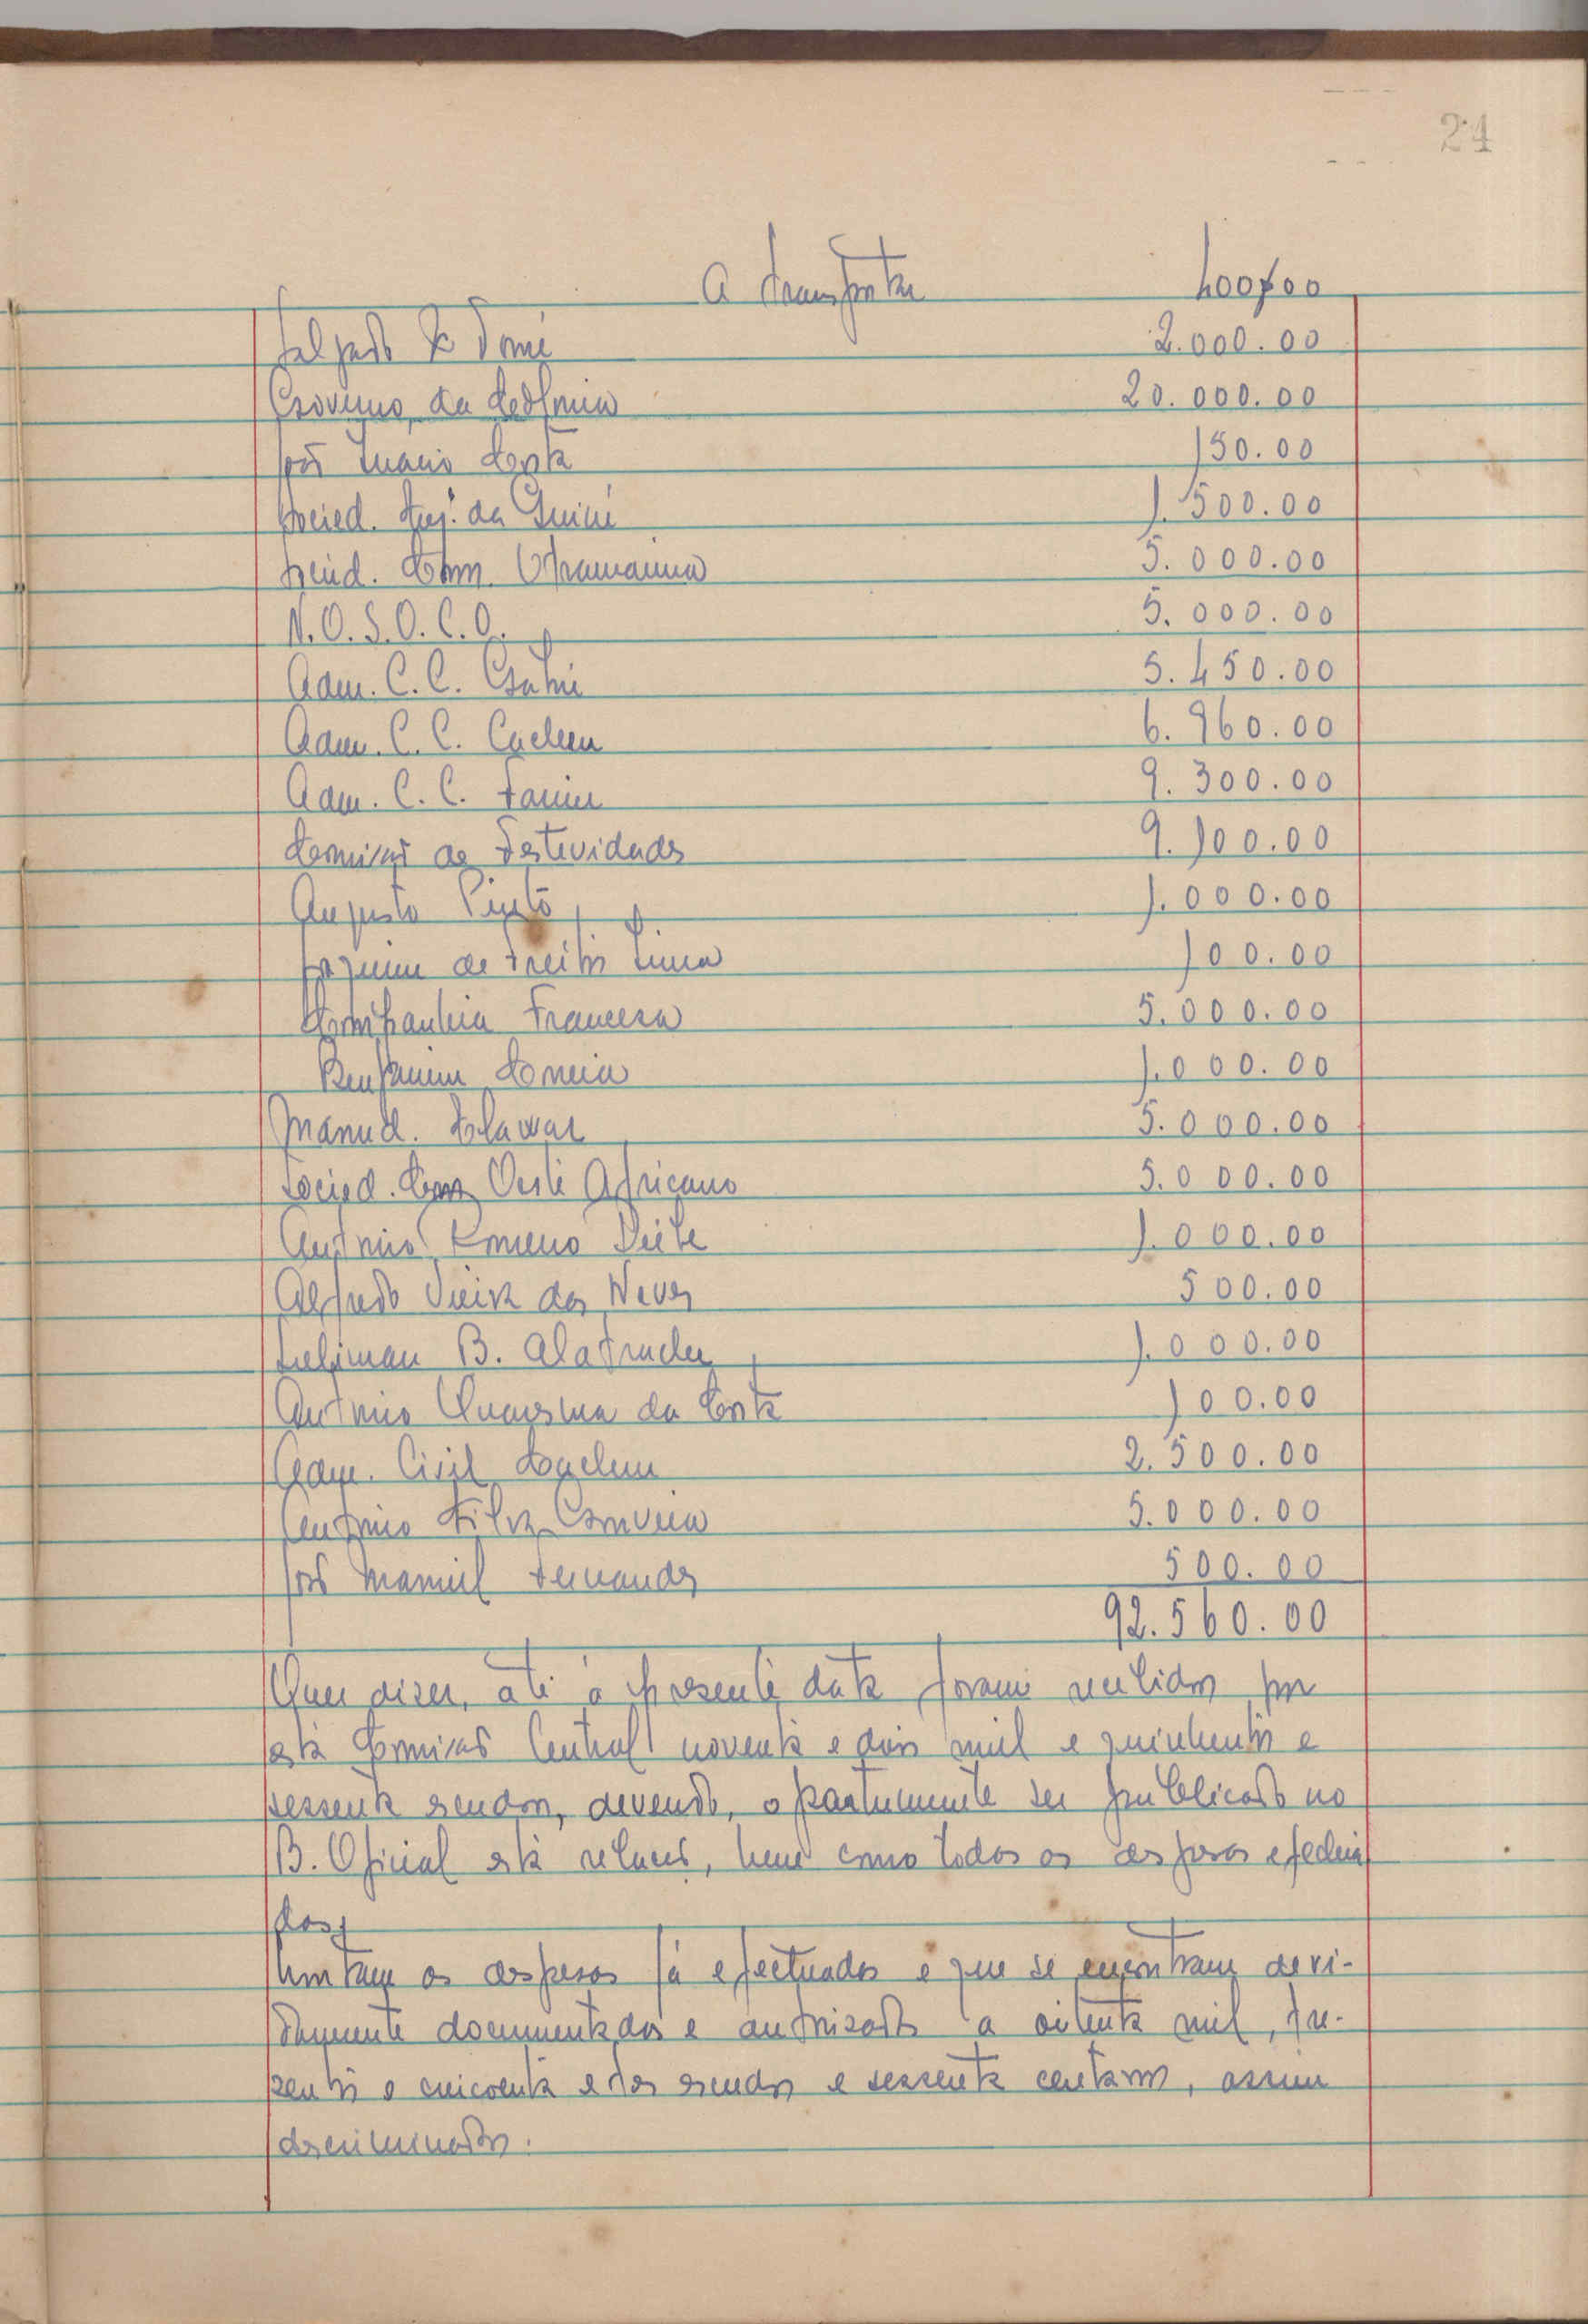 24
A transportar 400$00
Salgado & Tomé 2.000.00
Governo da Colónia 20.000.00
José Inácio Costa 150.00
Socied. Arroz. da Guiné 1.500.00
Socied. Com. Ultramarina 5.000.00
N.O.S.O.C.O. 5.000.00
Adm. C.C. Gabú 5.450.00
Adm. C.C. Cacheu 6.960.00
Adm. C.C. Farim 9.300.00
Comissão de Festividades 9.100.00
Augusto Pinto 1.000.00
Joaquim de Freitas Lima 100.00
Companhia Francesa 5.000.00
Benjamim Correia 1.000.00
Manuel 5.000.00
Socied. Com. Oeste Africano 5.000.00
António Romeno Leite 1.000.00
Alfredo Vieira das Neves 500.00
Suliman B. 1.000.00
António Quaresma da Costa 100.00
Adm. Civil Cacheu 2.500.00
António Silva Gouveia 5.000.00
José Manuel Fernandes 500.00
92.560.00
Quer dizer, até à presente data foram recebidos por
esta Comissão Central noventa e dois mil e quinhentos e
sessenta escudos, devendo, oportunamente ser publicado no
B. Oficial esta relação, bem como todas as despesas efectua
das.
Montam as despesas já efectuadas e que se encontram devi-
damente documentadas e autorizadas a oitenta mil, tre-
zentos e cincoenta e três escudos e sessenta centavos, assim
descriminados: